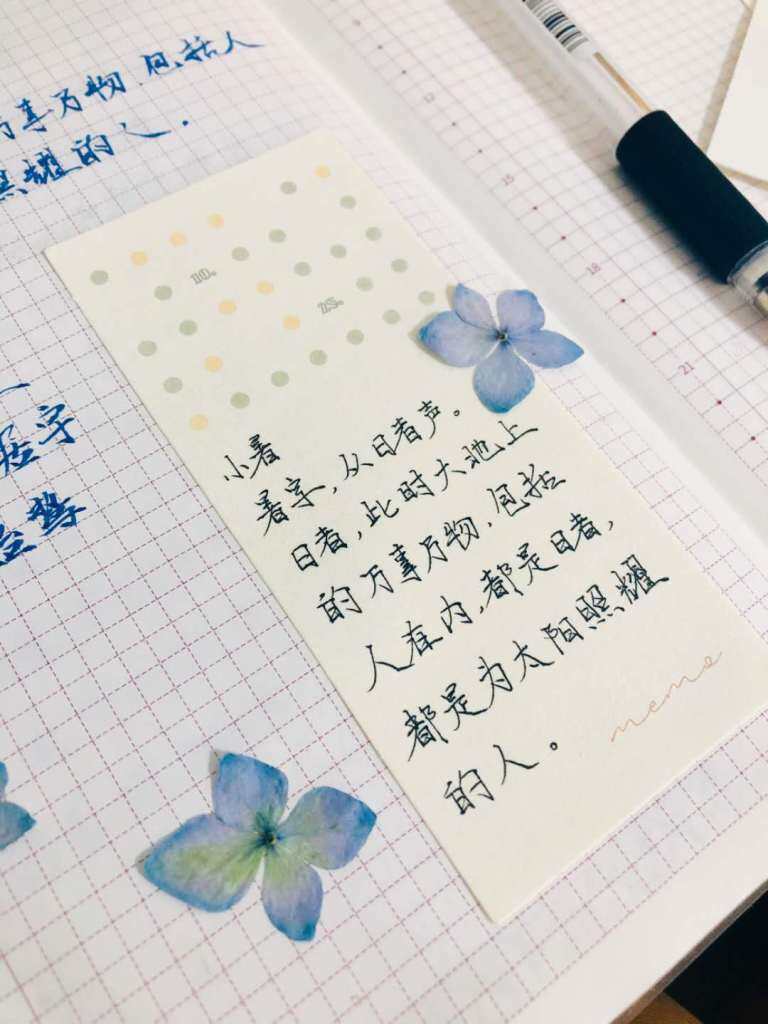 万事万物,包括人
照耀的人.
居字
10.
25.
小暑
暑字,从日者声。
日者,此时大地上
的万事万物,包括
人在内,都是日者,
都是为太阳照耀
的人。
memo
12
15
18
21